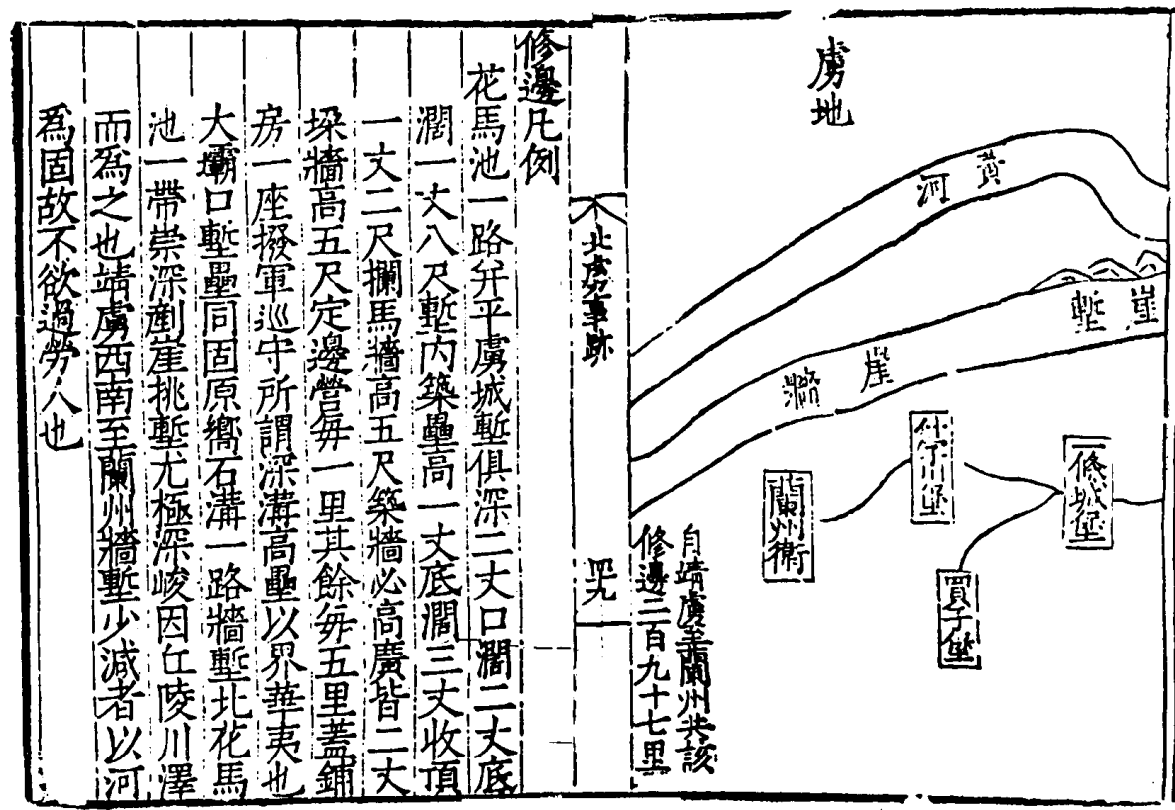 虜地
黃河
崖塹
崖牆
一條城堡
買子堡
什字川堡
蘭州衛
自靖虜至蘭州共該
修邊二百九十七里
北虜事跡
四九
修邊凡例
花馬池一路并平虜城塹俱深二丈口濶二丈底
濶一丈八尺塹內築壘高一丈底濶三丈收頂
一丈二尺攔馬牆高五尺築牆必高廣皆二丈
垜牆高五尺定邊營每一里其餘每五里蓋鋪
房一座撥軍巡守所謂深溝高壘以界華夷也
大壩口塹壘同固原嚮石溝一路牆塹北花馬
池一帶崇深剷崖挑塹尤極深峻因丘陵川澤
而為之也靖虜西南至蘭州牆塹少減者以河
為固故不欲過勞人也